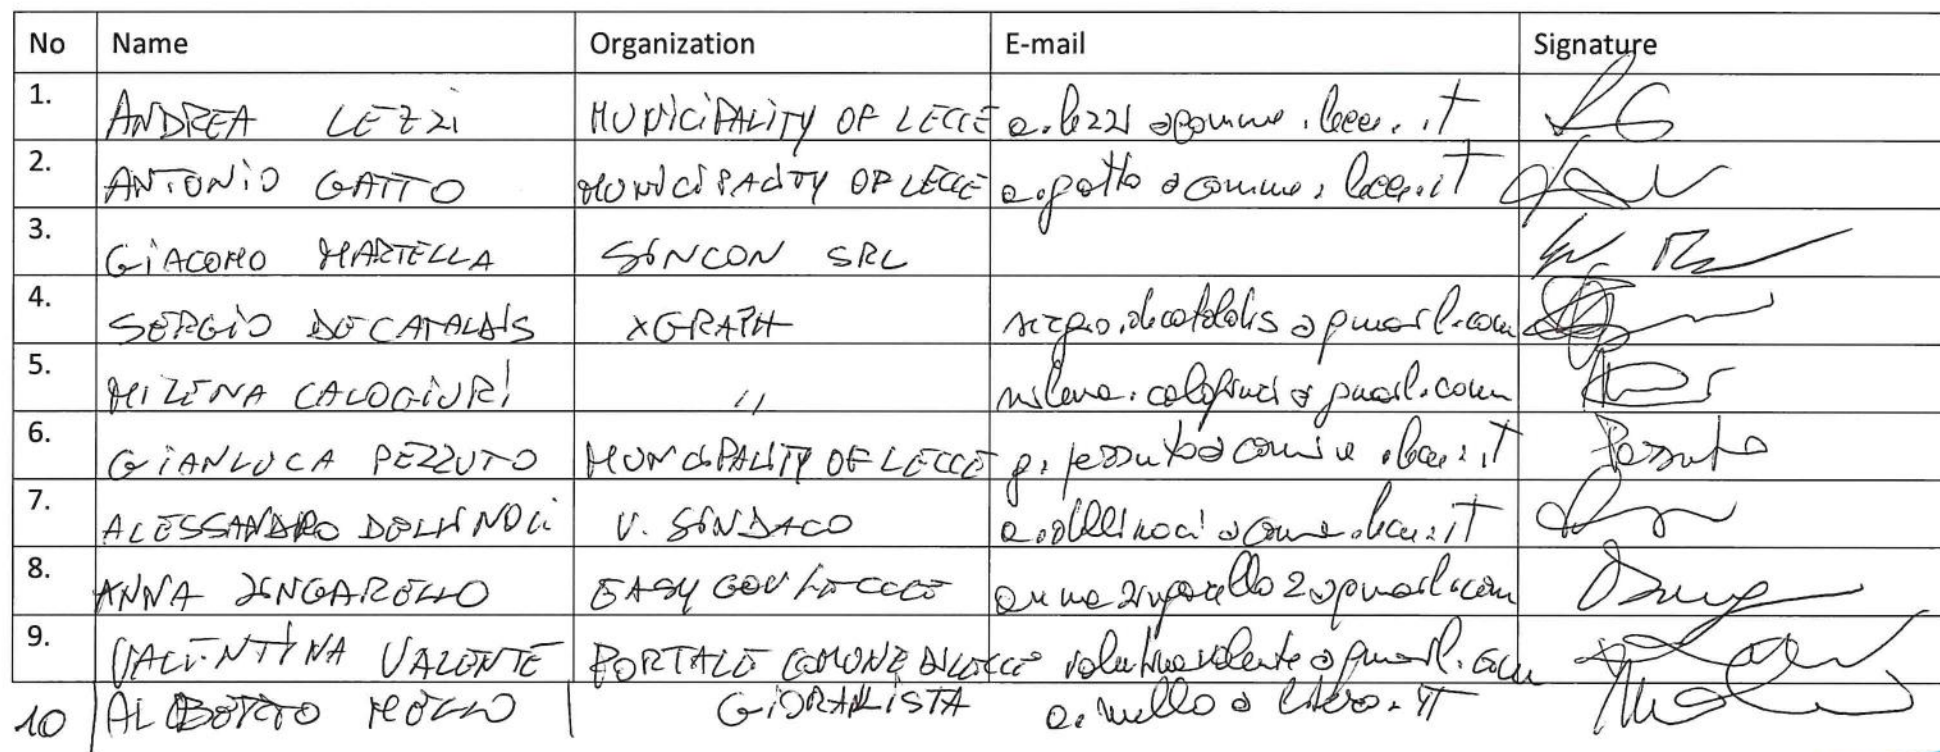 No Name Organization E-mail Signature
1. ANDREA LEZZI MUNICIPALITY OF LECCE a.lezzi@comune.lecce.it
2. ANTONIO GATTO MUNICIPALITY OF LECCE a.gatto@comune.lecce.it
3. GIACOMO MARTELLA SINCON SRL
4. SERGIO DE CATALDIS XGRAPH sergio.decataldis@gmail.com
5. MILENA CALOGIURI " milena.calogiuri@gmail.com
6. GIANLUCA PEZZUTO MUNICIPALITY OF LECCE g.pezzuto@comune.lecce.it Pezzuto
7. ALESSANDRO DELLI NOCI V. SINDACO a.dellinoci@comune.lecce.it
8. ANNA ZINGARELLO EASY GOV LECCE annazingarello2@gmail.com
9. VALENTINA VALENTE PORTALE COMUNE DI LECCE valentinavalente@gmail.com
10 ALBERTO MELLO GIORNALISTA a.mello@libero.it